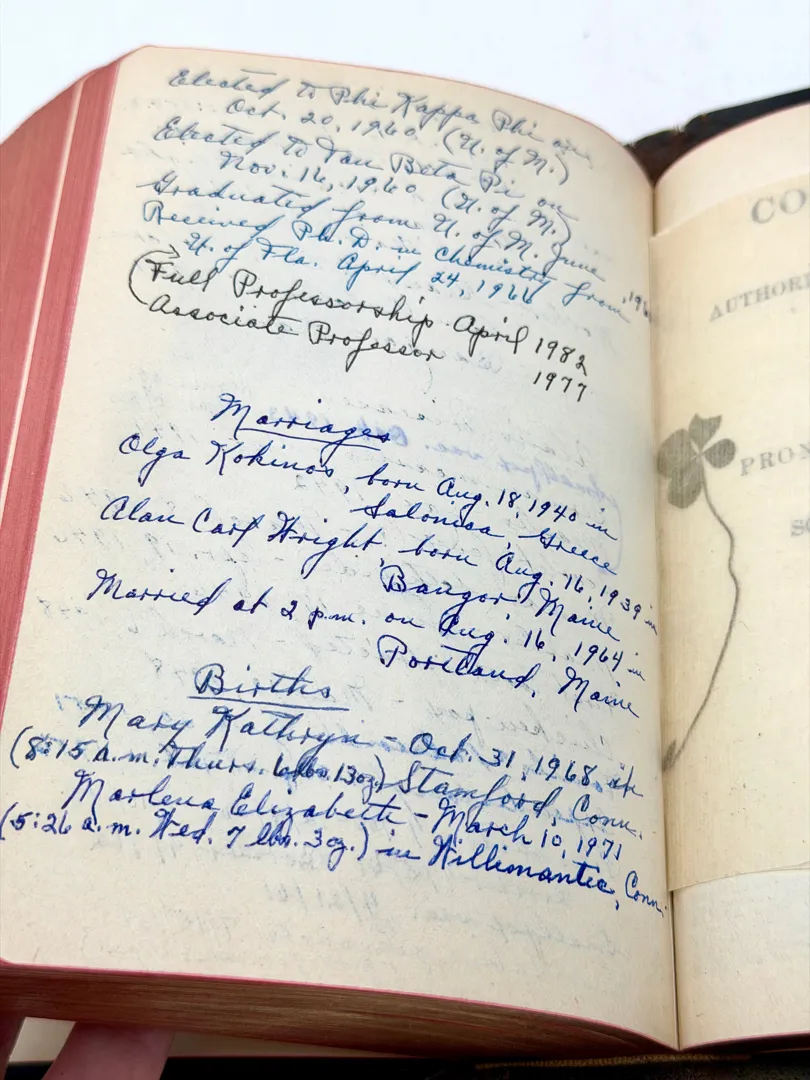 Elected to Phi Kappa Phi on
Oct. 20, 1960 (U. of M.)
Elected to Tau Beta Pi on
Nov. 16, 1960 (U. of M.)
Graduated from U. of M. June
Received Ph. D. in Chemistry from
U. of Fla. April 24, 1966
(Full Professorship April 1982
Associate Professor 1977
Marriages
Olga Kokinos, born Aug. 18, 1940 in
Salonica, Greece
Alan Carl Wright, born Aug. 16, 1939 in
Bangor, Maine
Married at 2 p.m. on Aug. 16, 1964 in
Portland, Maine
Births
Mary Kathryn - Oct. 31, 1968 in
(8:15 a.m. Thurs. 6 lbs. 13 oz.) Stamford, Conn.
Marlena Elizabeth - March 10, 1971
(5:26 a.m. Wed. 7 lbs. 3 oz.) in Willimantic, Conn.
CO
AUTHORI
PRON
SC